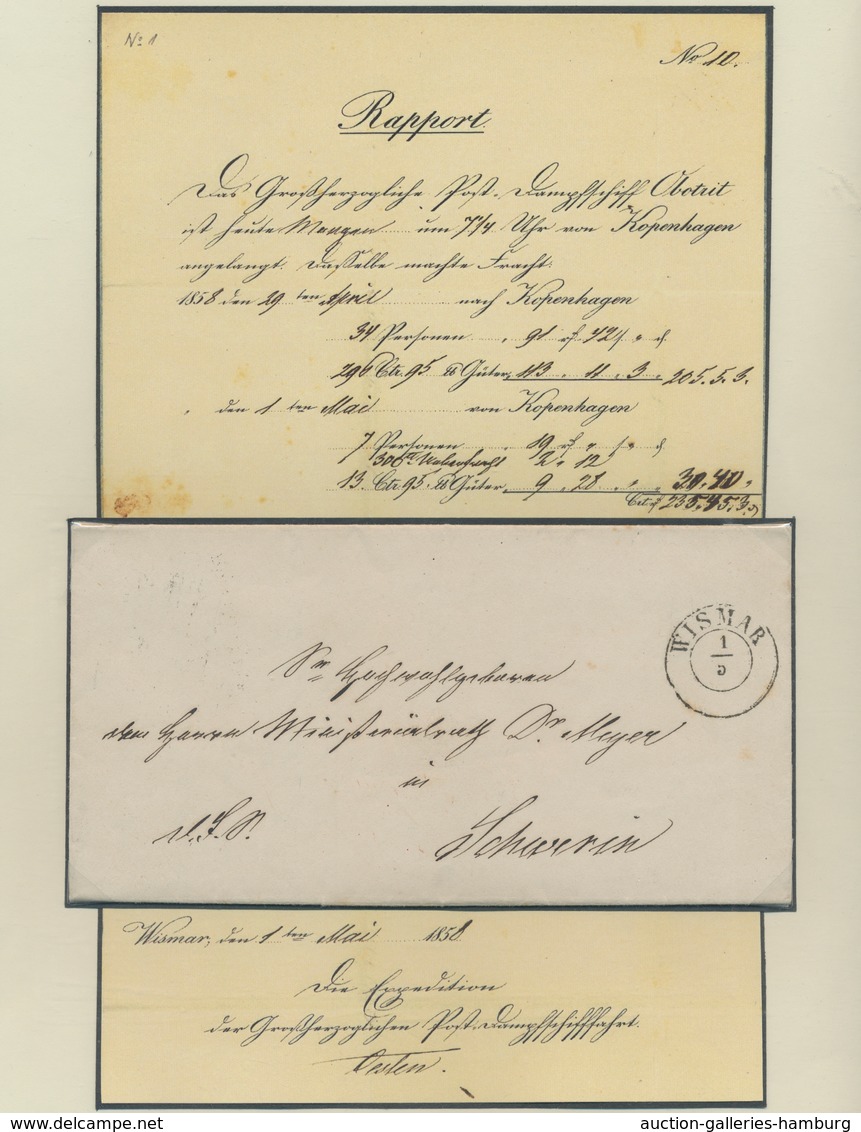 No 1
No 10.
Rapport
Das Großherzogliche Post-Dampfschiff Obotrit
ist heute Morgen um 7 1/4 Uhr von Kopenhagen
angelangt. Dasselbe machte Fracht:
1858 den 29 ten April nach Kopenhagen
34 Personen " 91 " 42 "
296 Ctr. 95 ℔ Güter, 113 " 11 " 3 " 205.5.3.
" den 1 ten Mai von Kopenhagen
7 Personen " 19 "
300 ℔ Ueberfracht 2 " 12
13 Ctr. 95 ℔ Güter " 9 " 28 " 30.40 "
Crt. 235.45.3.
WISMAR
1
5
Sr Hochwohlgeboren
dem Herrn Ministerialrath Dr. Meyer
in
d. S.
Schwerin
Wismar, den 1 ten Mai 1858
Die Expedition
der Großherzoglichen Post-Dampfschifffahrt.
delcampe.net
auction-galleries-hamburg